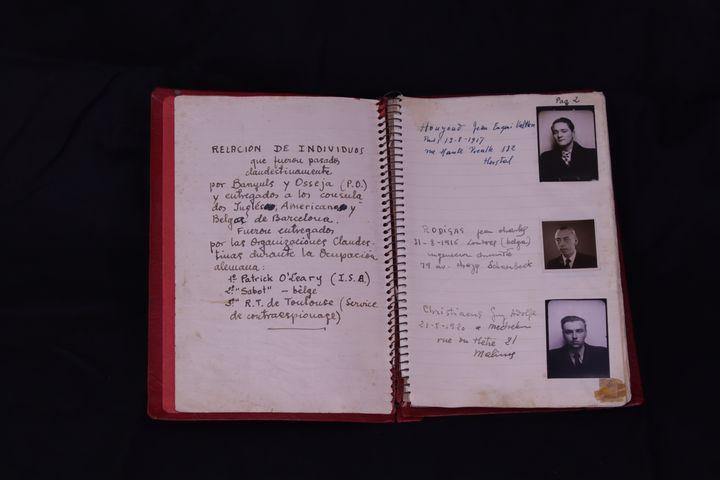 RELACIÓN DE INDIVIDUOS
que fueron pasados
clandestinamente
por Banyuls y Osseja (P.O.)
y entregados a los consula
dos Ingleses, Americanos y
Belgas de Barcelona.
Fueron entregados
por las Organizaciones Clandes-
tinas durante la Ocupación
alemana:
1º Patrick O'Leary (I.S.A.)
2º "Sabot" – belge
3º R.T. de Toulouse (Service
de contraespionage)
Pag 2
Jean
13-8-1917
rue Haute 182
Herstal
RODIGAS jean charles
31-8-1916 Londres (belga)
ingenieur
79 av.
Christiaens Guy Adolfe
21-5-1920 a mechelen
rue du Hetre 21
Malines